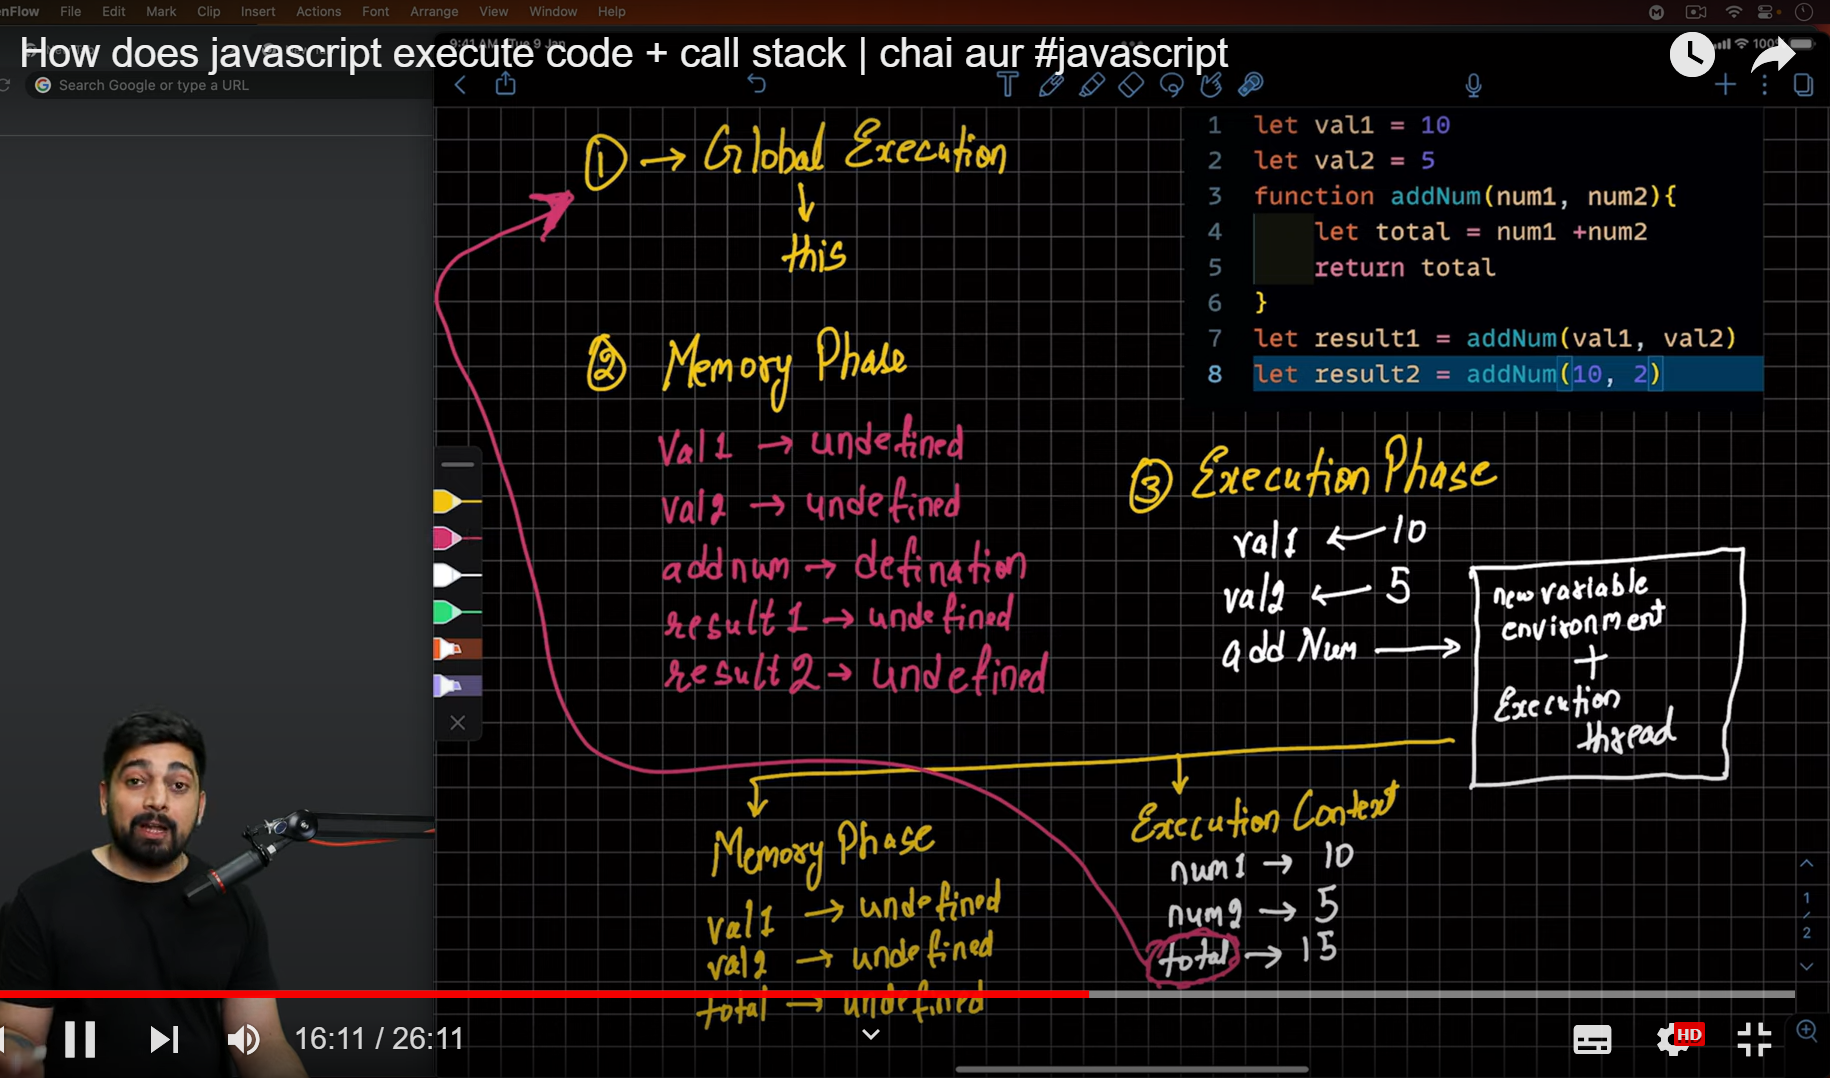 nFlow File Edit Mark Clip Insert Actions Font Arrange View Window Help
How does javascript execute code + call stack | chai aur #javascript
9:41 AM Tue 9 Jan
100%
Search Google or type a URL
① → Global Execution
this
② Memory Phase
val1 → undefined
val2 → undefined
addnum → defination
result1 → undefined
result2 → undefined
1 let val1 = 10
2 let val2 = 5
3 function addNum(num1, num2){
4 let total = num1 +num2
5 return total
6 }
7 let result1 = addNum(val1, val2)
8 let result2 = addNum(10, 2)
③ Execution Phase
val1 ← 10
val2 ← 5
add Num →
new variable
environment
+
Execution
thread
Memory Phase
val1 → undefined
val2 → undefined
total → undefined
Execution Context
num1 → 10
num2 → 5
total → 15
1
/
2
16:11 / 26:11
HD